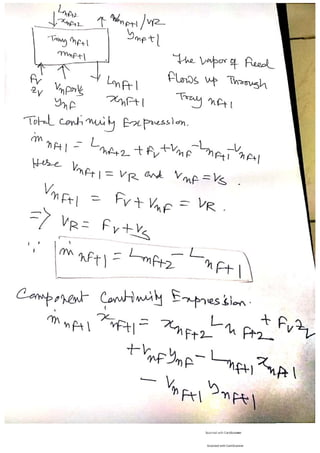 L_nF+2
x_nF+2
V_nF+1 / VR
y_nF+1
Tray nF+1
m_nF+1
F_V
z_V
V_nF
y_nF
L_nF+1
x_nF+1
The vapor of Feed
Flows up Through
Tray nF+1
Total Continuity Expression.
ṁ_nF+1 = L_nF+2 + F_V + V_nF - L_nF+1 - V_nF+1
Here V_nF+1 = VR and V_nF = VS.
V_nF+1 = F_V + V_nF = VR.
=> VR = F_V + VS
∵ ṁ_nF+1 = L_nF+2 - L_nF+1
Component Continuity Expression.
ṁ_nF+1 ẋ_nF+1 = x_nF+2 L_nF+2 + F_V z_V
+ V_nF y_nF - L_nF+1 x_nF+1
- V_nF+1 y_nF+1
Scanned with CamScanner
Scanned with CamScanner